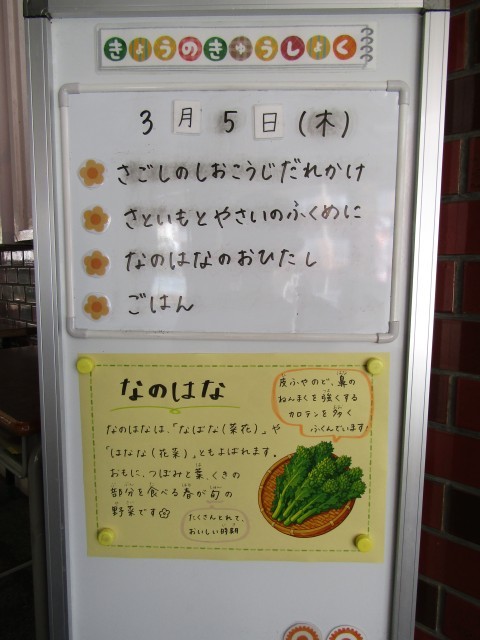 きょうのきゅうしょく
3月5日(木)
さごしのしおこうじだれかけ
さといもとやさいのふくめに
なのはなのおひたし
ごはん
なのはな
皮ふやのど、鼻の
ねんまくを強くする
カロテンを多く
ふくんでいます!
なのはなは、「なばな(菜花)」や
「はなな(花菜)」ともよばれます。
おもに、つぼみと葉、くきの
部分を食べる春が旬の
野菜です
たくさんとれて、
おいしい時期